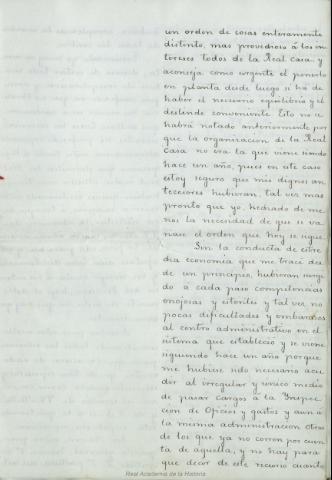 un orden de cosas enteramente
distinto, mas provechoso á los in
tereses todos de la Real Casa, y
aconseja como urgente el ponerlo
en planta desde luego si ha de
haber el necesario equilibrio y el
deslinde conveniente. Esto no se
habrá notado anteriormente por
que la organizacion de la Real
Casa no era la que viene siendo
hace un año, pues en este caso
estoy seguro que mis dignos an
tecesores hubieran, tal vez mas
pronto que yo, hechado de me
nos la necesidad de que se va
riase el orden que hoy se sigue.
Sin la conducta de estre
cha economia que me tracé des
de un principio, hubieran surgi
do á cada paso competencias
enojosas y esteriles y tal vez no
pocas dificultades y embarazos
al centro administrativo en el
sistema que estableció y se viene
siguiendo hace un año porque
me hubiese sido necesario acu
dir al irregular y unico medio
de pasar cargos á la Inspec
cion de Oficios y gastos y aun á
la misma administracion otros
de los que ya no corren por cuen
ta de aquella, y no hay para
que decir de este recurso cuanto
Real Academia de la Historia